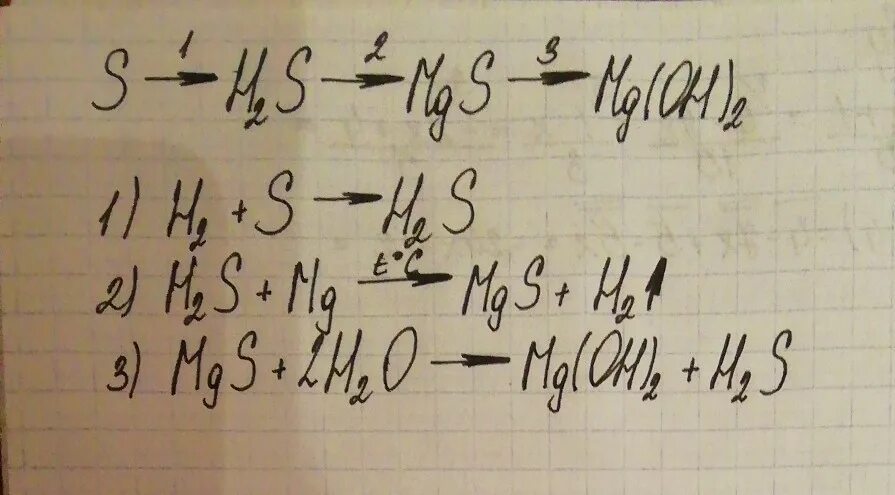 S 1→ H₂S 2→ MgS 3→ Mg(OH)₂
1) H₂ + S → H₂S
2) H₂S + Mg t°C→ MgS + H₂↑
3) MgS + 2H₂O → Mg(OH)₂ + H₂S